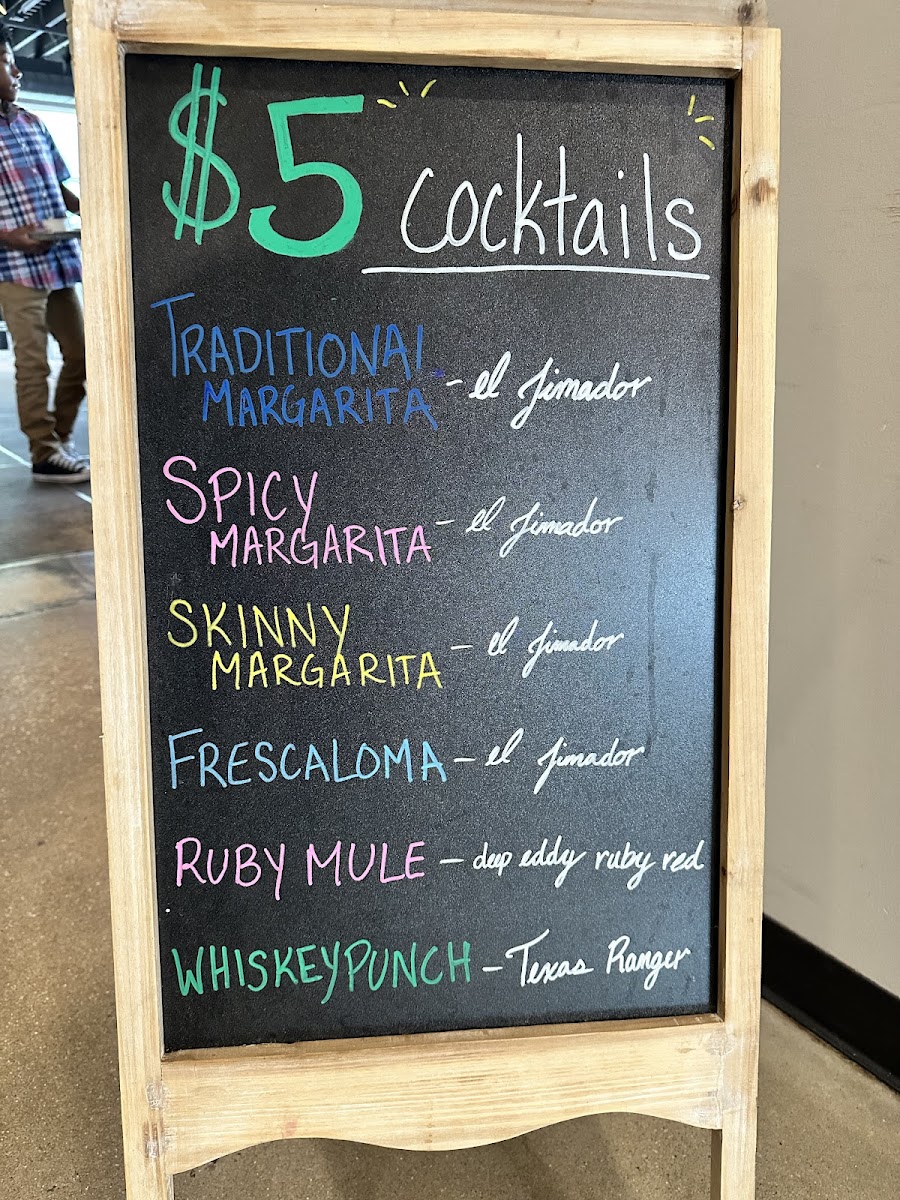 $5 Cocktails
TRADITIONAL
MARGARITA - el Jimador
SPICY
MARGARITA - el Jimador
SKINNY
MARGARITA - el Jimador
FRESCALOMA - el Jimador
RUBY MULE - deep eddy ruby red
WHISKEY PUNCH - Texas Ranger